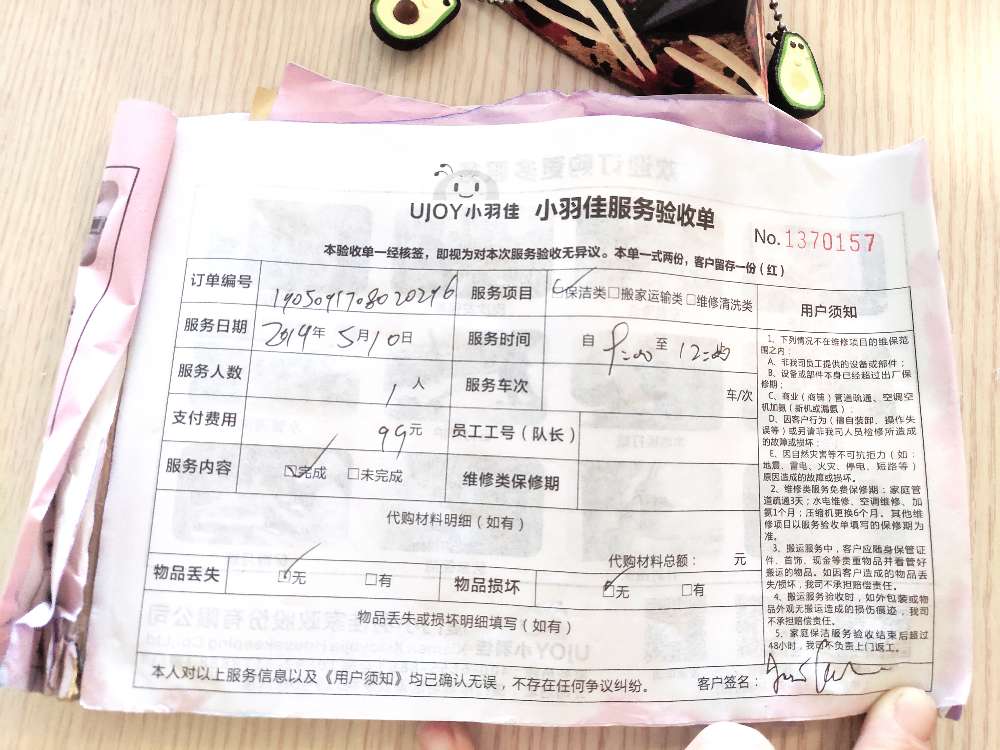 UJOY小羽佳 小羽佳服务验收单
No.1370157
本验收单一经核签，即视为对本次服务验收无异议。本单一式两份，客户留存一份（红）
订单编号 190509170802029 6 服务项目 ☑保洁类□搬家运输类□维修清洗类
服务日期 2019年 5月10日 服务时间 自 9:00 至 12:00
服务人数 1 人 服务车次 车/次
支付费用 99元 员工工号（队长）
服务内容 ☑完成 □未完成 维修类保修期
代购材料明细（如有）
代购材料总额： 元
物品丢失 ☑无 □有 物品损坏 ☑无 □有
物品丢失或损坏明细填写（如有）
本人对以上服务信息以及《用户须知》均已确认无误，不存在任何争议纠纷。 客户签名：
用户须知
1、下列情况不在维修项目的维保范
围之内：
A、非我司员工提供的设备或部件；
B、设备或部件本身已经超过出厂保
修期；
C、商业（商铺）管道疏通、空调空
机加氨（新机或漏氨）；
D、因客户行为（擅自装卸、操作失
误等）或另请非我司人员检修所造成
的故障或损坏；
E、因自然灾害等不可抗拒力（如：
地震、雷电、火灾、停电、短路等）
原因造成的故障或损坏。
2、维修类服务免费保修期：家庭管
道疏通3天；水电维修、空调维修、加
氨1个月；压缩机更换6个月。其他维
修项目以服务验收单填写的保修期为
准。
3、搬运服务中，客户应随身保管证
件、首饰、现金等贵重物品并看管好
搬运的物品。如因客户造成的物品丢
失/损坏，我司不承担赔偿责任。
4、搬运服务验收时，如外包装或物
品外观无搬运造成的损伤痕迹，我司
不承担赔偿责任。
5、家庭保洁服务验收结束后超过
48小时，我司不负责上门返工。